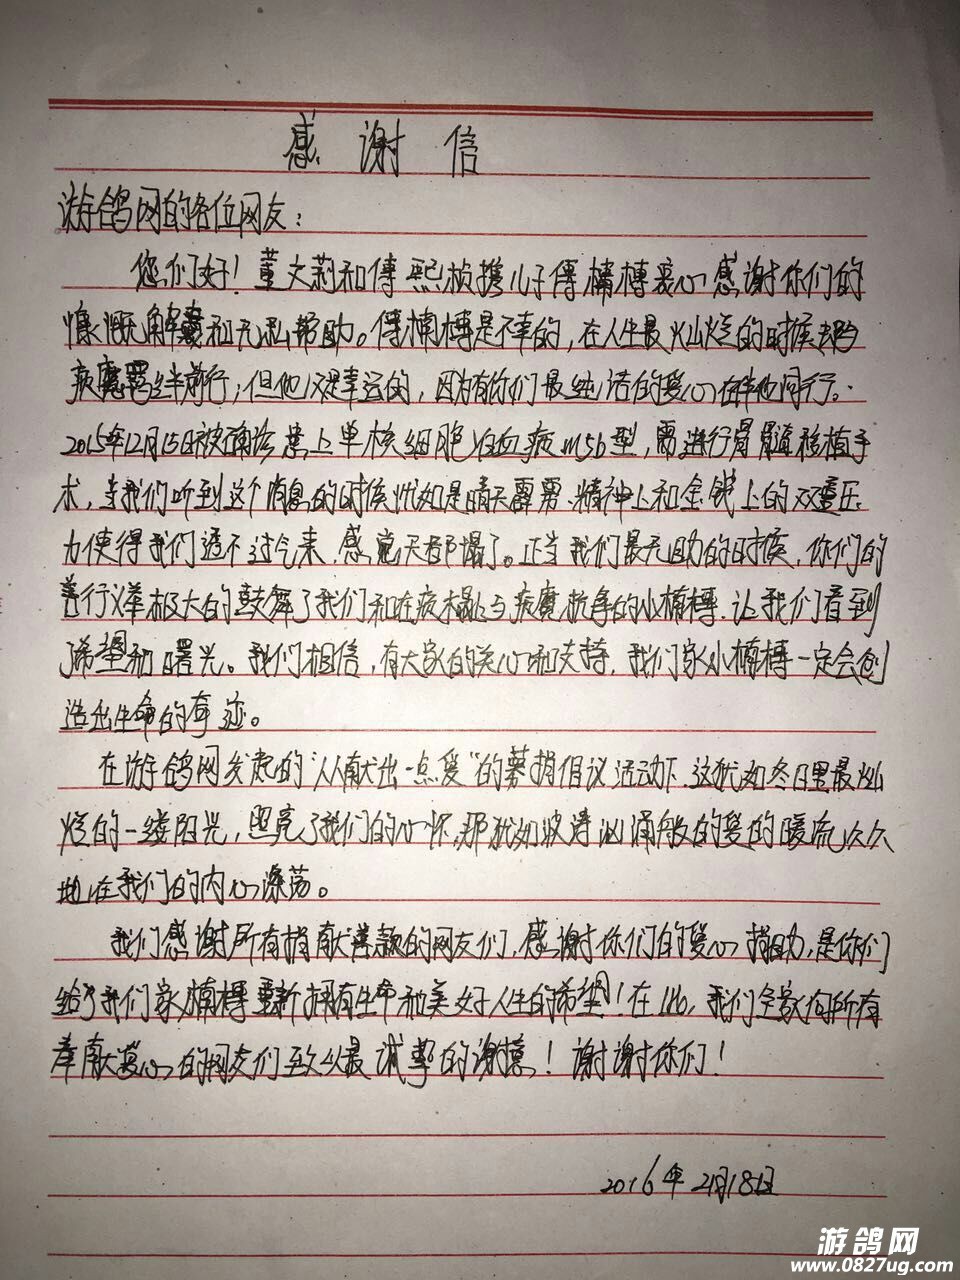 感谢信
游鸽网的各位网友：
您们好！董文莉和傅熙桢携儿子傅楠榑衷心感谢你们的
慷慨解囊和无私帮助。傅楠榑是不幸的，在人生最灿烂的时候却与
病魔羁绊前行；但他又是幸运的，因为有你们最纯洁的爱心在伴他同行。
2015年12月15日被确诊患上单核细胞性白血病m5b型，需进行骨髓移植手
术，当我们听到这个消息的时候犹如是晴天霹雳.精神上和金钱上的双重压
力使得我们透不过气来.感觉天都塌了。正当我们最无助的时候，你们的
善行义举极大的鼓舞了我们和在疾榻上与病魔抗争的小楠榑.让我们看到
了希望和曙光。我们相信，有大家的关心和支持，我们家小楠榑一定会创
造出生命的奇迹。
在游鸽网发起的“人人献出一点爱”的募捐倡议活动下.这犹如冬日里最灿
烂的一缕阳光，照亮了我们的心怀,那犹如波涛汹涌般的爱的暖流久久
地在我们的内心漾荡。
我们感谢所有捐献善款的网友们，感谢你们的爱心捐助，是你们
给了我们家小楠榑重新拥有生命和美好人生的希望！在此，我们全家向所有
奉献爱心的网友们致以最诚挚的谢意！谢谢你们！
2016年2月18日
游鸽网
www.0827ug.com